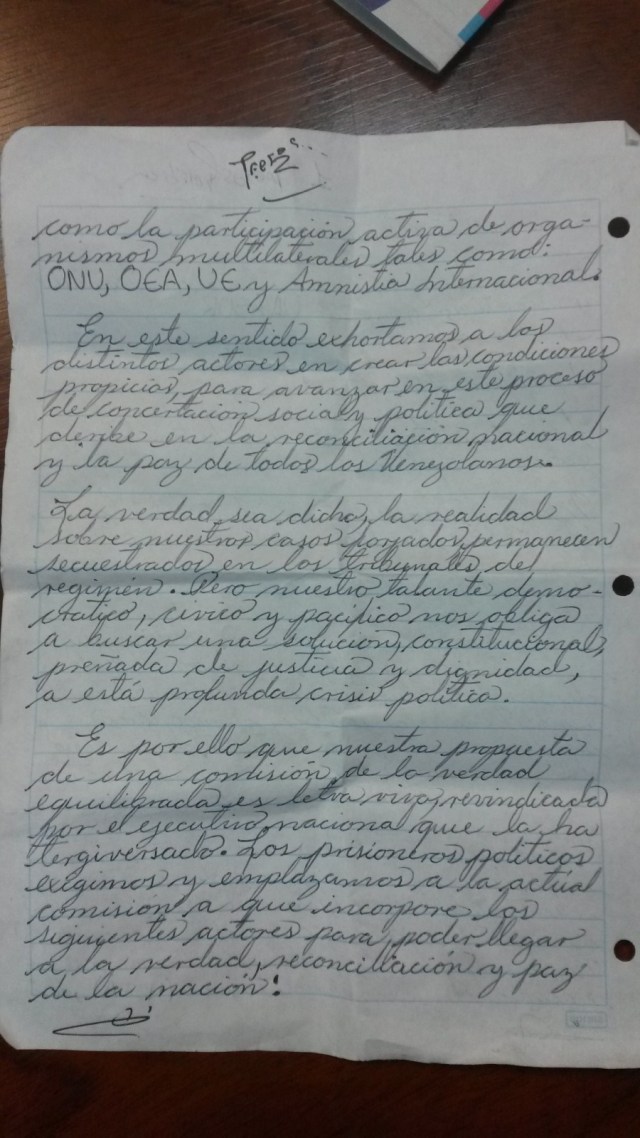 como la participación activa de orga-
nismos multilaterales tales como:
ONU, OEA, UE y Amnistia Internacional.
En este sentido exhortamos a los
distintos actores en crear las condiciones
propicias, para avanzar en este proceso
de concertación social y política que
deribe en la reconciliación nacional
y la paz de todos los Venezolanos.
La verdad sea dicha, la realidad
sobre nuestros casos forjados, permanecen
secuestrados en los tribunales del
regimén. Pero nuestro talante demo-
crático, civico y pacifico nos obliga
a buscar una solución, constitucional,
preñada de justicia y dignidad,
a está profunda crisis política.
Es por ello que nuestra propuesta
de una comisión de la verdad
equilibrada es letra viva, revindicada
por el ejecutivo naciona que la ha
tergiversado. Los prisioneros politicos
exigimos y emplazamos a la actúal
comision a que incorpore los
siguientes actores para, poder llegar
a la verdad, reconciliación y paz
de la nación: